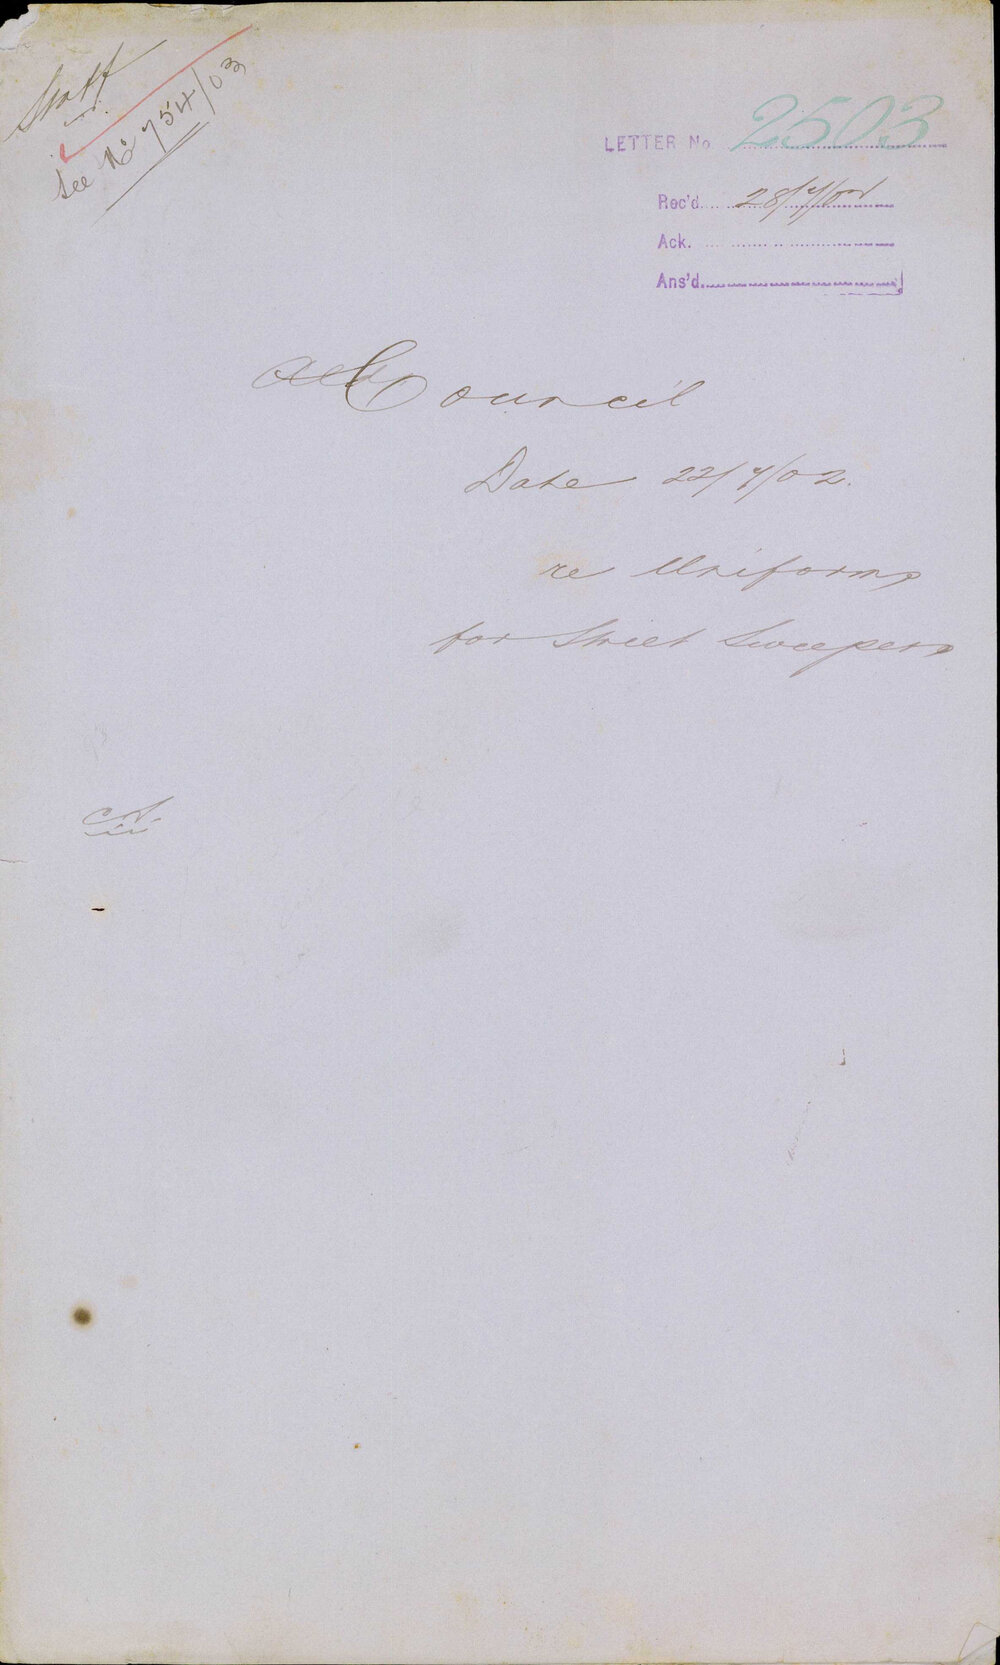 Staff
See No 754/03
LETTER No 2503
Rec'd 28/7/02
Ack.
Ans'd
Council
Date 22/7/02.
re Uniforms
for Street Sweepers